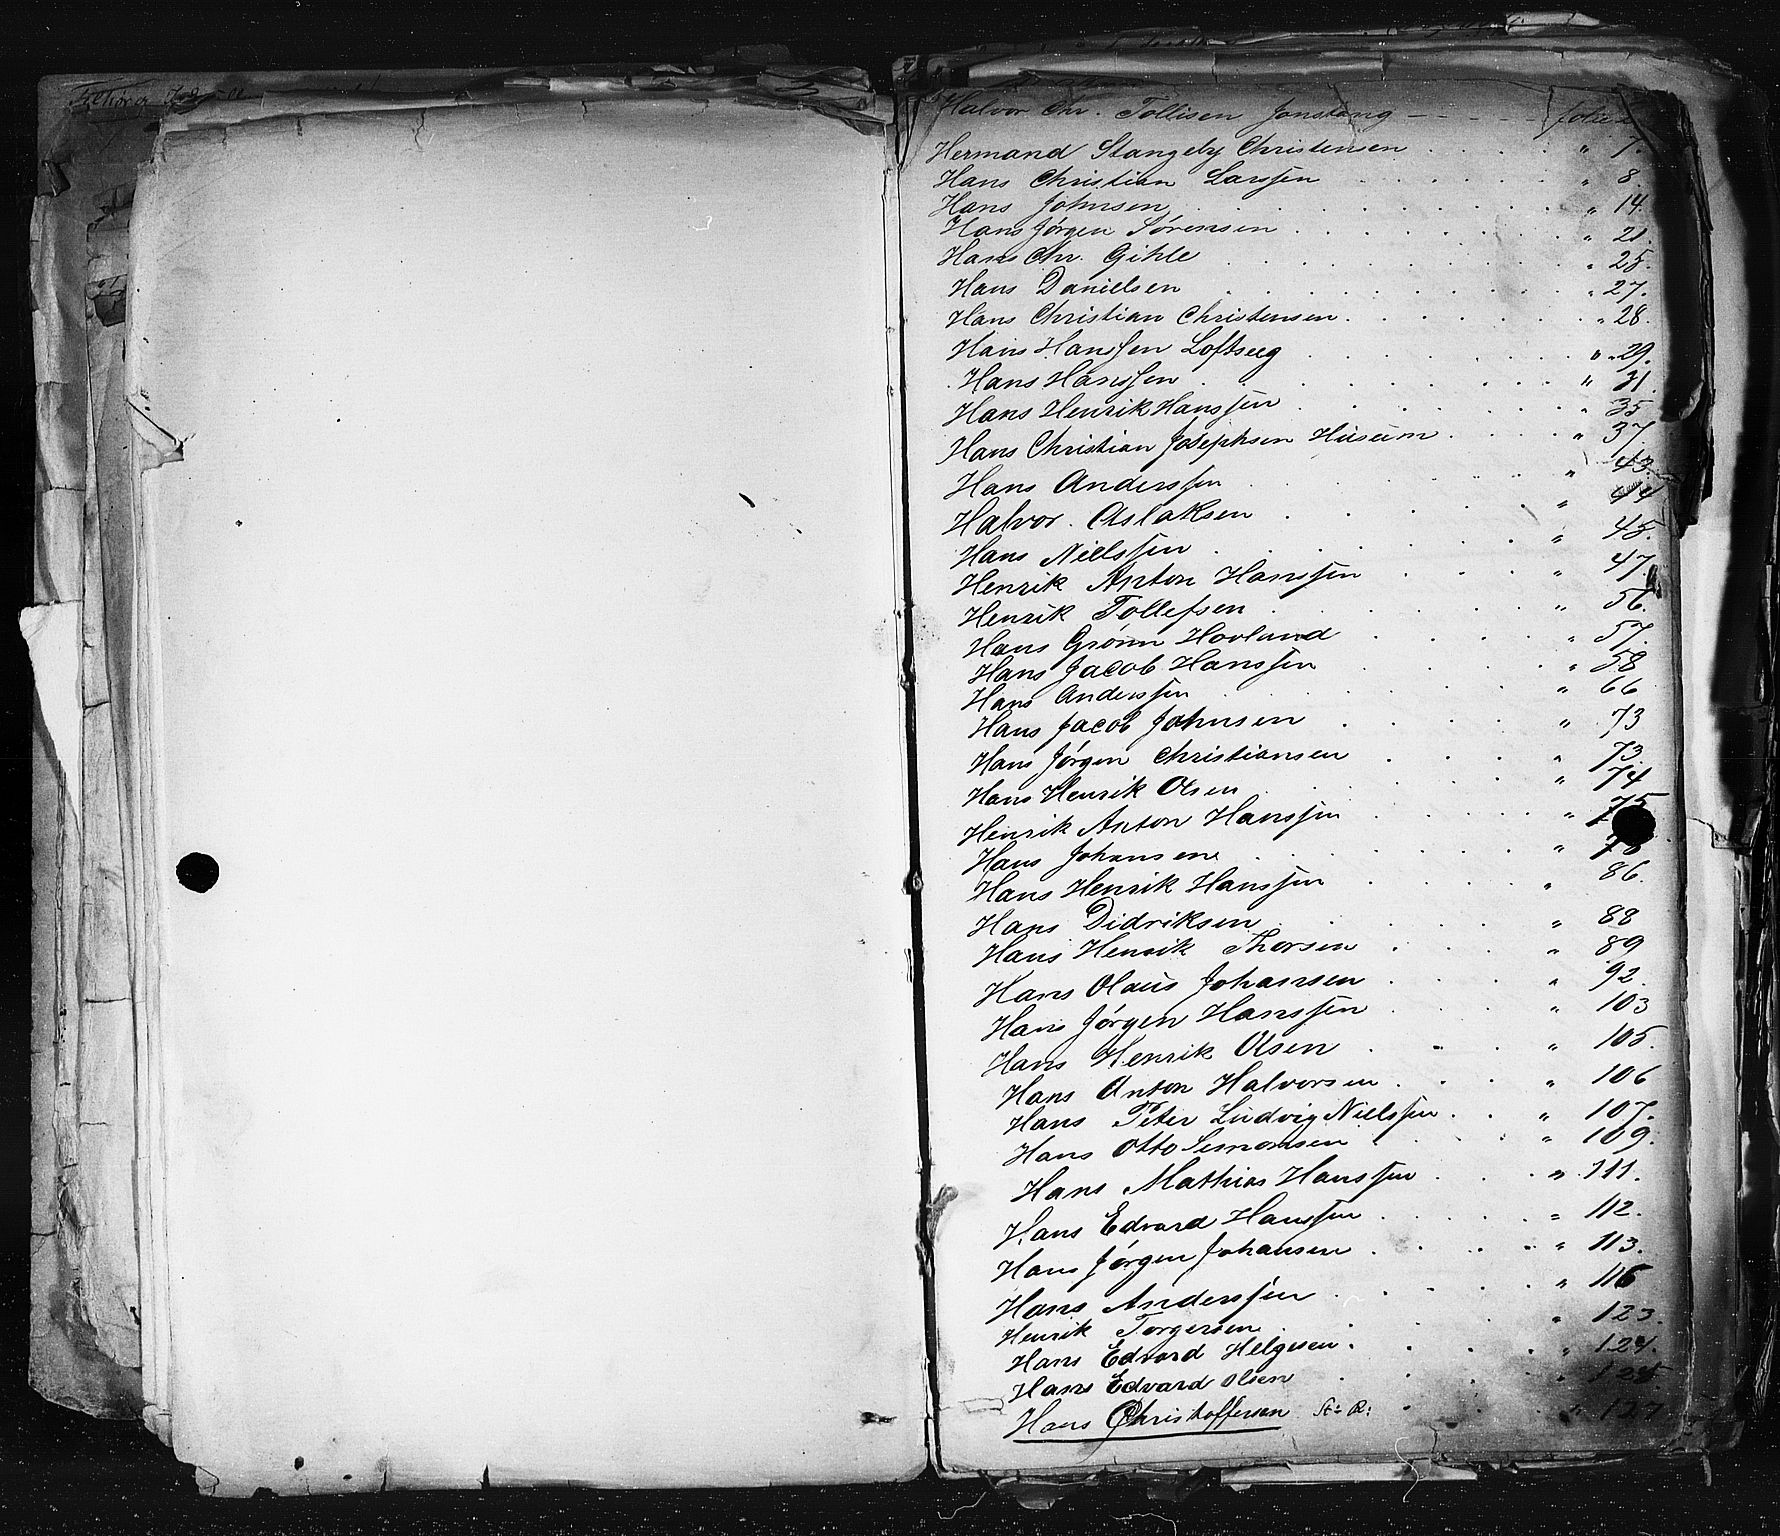 Halvor Chr. Tollisen Jonstang — — — folie
Hermand Stangeby Christensen . . . . " 7.
Hans Christian Larssen . . . . . " 8
Hans Johnsen . . . . . . . " 14.
Hans Jörgen Sørensen . . . . . . " 21.
Hans Chr. Gihle . . . . . . . " 25.
Hans Danielsen . . . . . . . " 27.
Hans Christian Christensen . . . . . " 28.
Hans Hanssen Loftseeg . . . . . " 29.
Hans Hanssen . . . . . . . " 31.
Hans Henrik Hanssen . . . . . . " 35
Hans Christian Josephsen Huseum . . . . " 37.
Hans Anderssen . . . . . . " 43.
Halvor Aslaksen . . . . . " 44
Hans Nielssen . . . . . . " 45.
Henrik Anton Hanssen . . . . " 47.
Henrik Tollefsen . . . . . " 56.
Hans Grönn Hovland . . . . " 57.
Hans Jacob Hanssen . . . . " 58
Hans Anderssen . . . . . " 66
Hans Jacob Johnsen . . . . " 73
Hans Jörgen Christiansen . . . . " 73.
Hans Henrik Olsen . . . . . " 74
Henrik Anton Hanssen . . . . " 75
Hans Johansen . . . . . . " 78
Hans Henrik Hanssen . . . . " 86.
Hans Didriksen . . . . . " 88
Hans Henrik Thorsen . . . . " 89
Hans Olaus Johansen . . . . " 92.
Hans Jörgen Hanssen . . . . " 103
Hans Henrik Olsen . . . . " 105.
Hans Anton Halvorsen . . . " 106
Hans Peter Ludvig Nielssen . . " 107.
Hans Otto Simonsen . . . . " 109.
Hans Mathias Hanssen . . . " 111.
Hans Edvard Hanssen . . . . " 112.
Hans Jörgen Johansen . . . . " 113.
Hans Anderssen . . . . . " 116
Henrik Torgersen . . . . . " 123.
Hans Edvard Helgesen . . . . " 124.
Hans Edvard Olsen . . . . . "
Hans Christoffersen St: R: . . . " 127